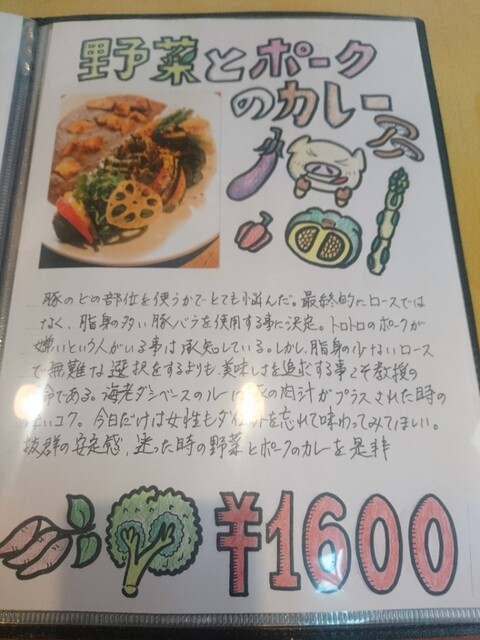 野菜とポーク
のカレー
豚のどの部位を使うかでとても悩んだ。最終的にロースでは
なく、脂身の多い豚バラを使用する事に決定。トロトロのポークが
嫌いという人がいる事は承知している。しかし、脂身の少ないロース
で無難な選択をするよりも、美味しさを追求する事こそ教授の
命である。海老ダシベースのルーに豚の肉汁がプラスされた時の
コク。今日だけは女性もダイエットを忘れて味わってみてほしい。
抜群の安定感、迷った時の野菜とポークのカレーを是非
¥1600